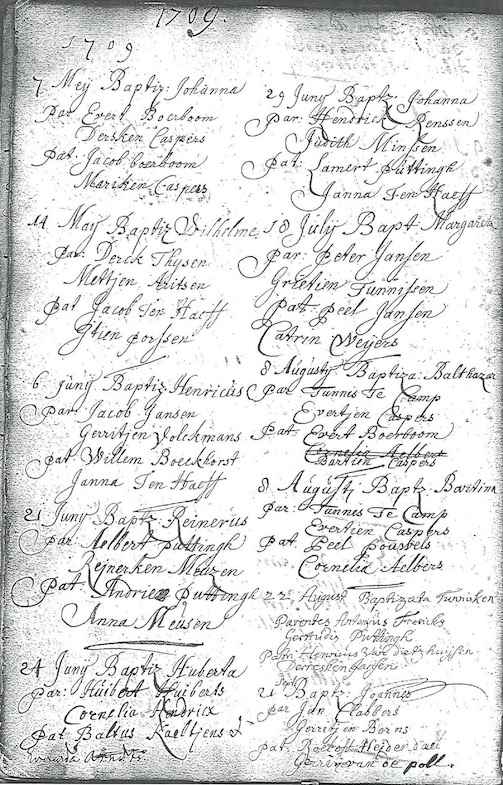 1709.
1709
7 Meÿ Baptiz: Johanna
Par Evert Boerboom
Dersken Caspers
pat. Jacob boerboom
Mariken Caspers
14 Maÿ Baptiz Wilhelme
Par: Derck Thysen
Mettjen Aritsen
pat Jacob Ten Haeff
Jtien
6 Junÿ Baptiz Henricus
Par Jacob Jansen
Gerritjen Volckmans
pat Willem Boeckhorst
Janna Ten Haeff
21 Junÿ Baptz Reinerus
Par Aelbert puttingh
Reinerken Meuzen
Pat. Andries puttingh
Anna Meusen
24 Junÿ Baptiz Huberta
Par: Huibert Huiberts
Cornelia Hendricx
Pat Baltus Kaeltjens
Arndts
29 Junÿ Baptz Johanna
Par: Hendrick Renssen
Judith Minssen
Pat: Lamert puttingh
Janna Ten Haeff
18 Julÿ Bapt Margareta
Par: Peter Jansen
Grietien Tunnissen
Pat: Peel Jansen
Catrin Weÿers
8 Augustÿ Baptiza: Balthazar
Par Tunnes Te Camp
Evertjen Caspers
Pat. Evert Boerboom
Cornelia Aelbers
Bartien Caspers
8 Augustÿ Baptz. Bartina
Par: Tunnes Te Camp
Evertien Caspers
Pat Peel pouwels
Cornelia Aelbers
22 August Baptizata Tunnisken
Parentes Antonius Frericks
Gertrudis Puttingh
Patr. Henricus Van dietzhuijsen
Derresken Jansen
Sept
21 Baptz: Joannes
par Jan Clabbers
Gerritjen Berns
pat. Roeloff
van de poll.